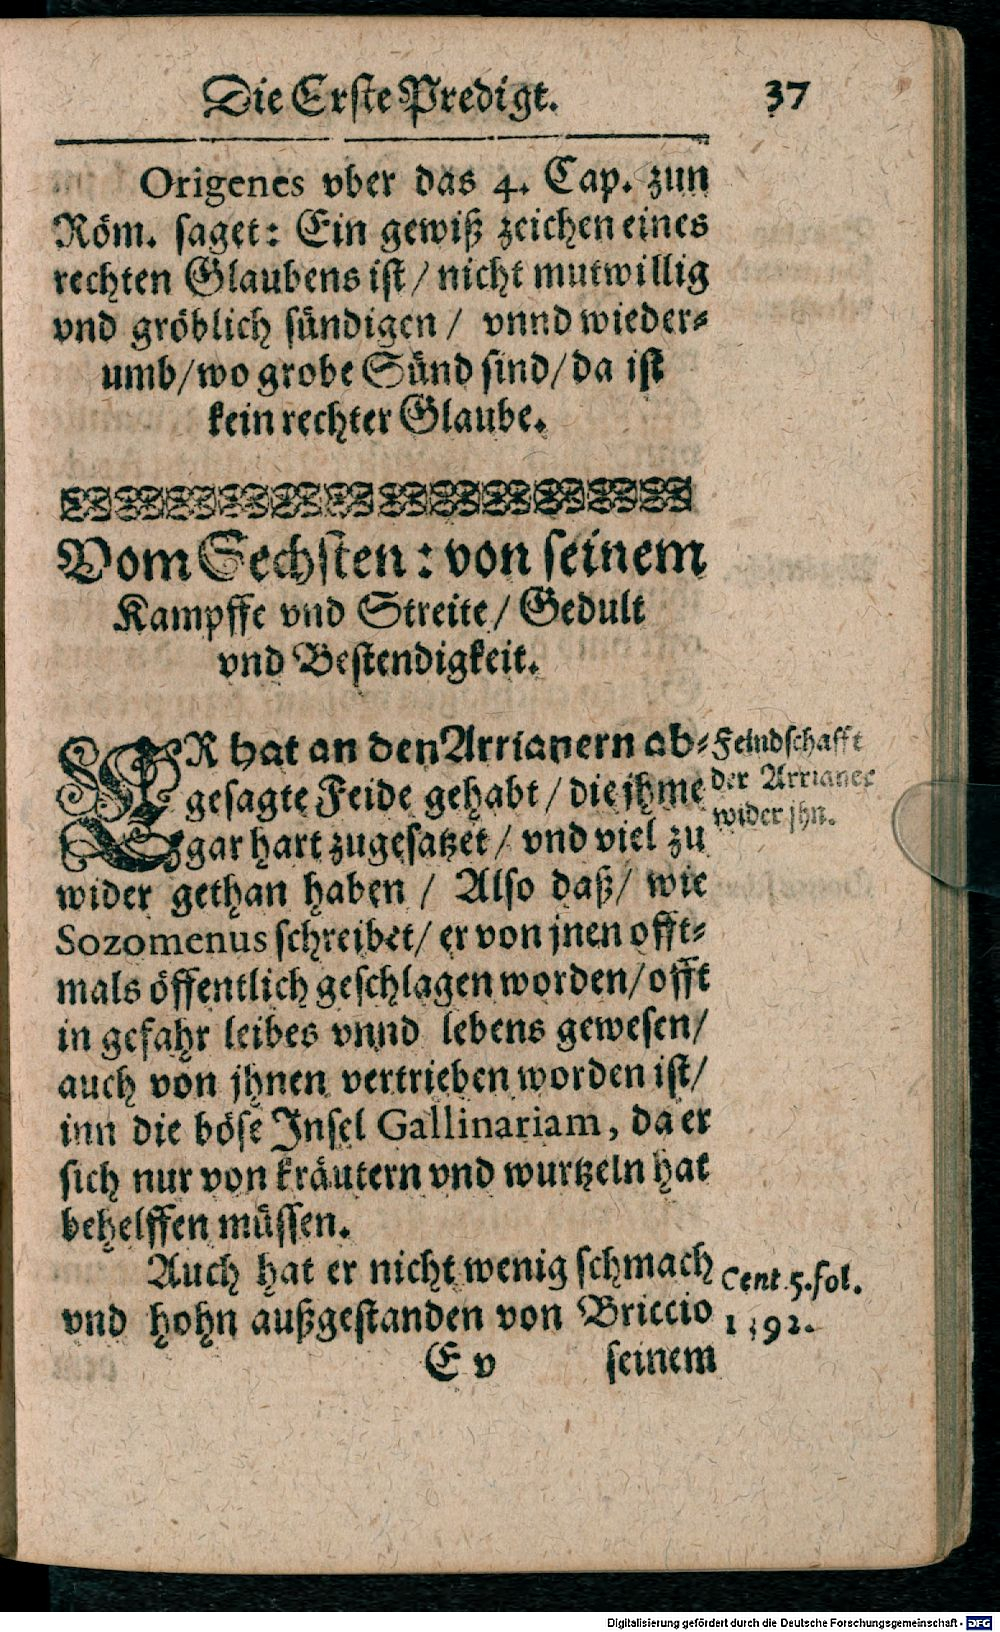 Die Erste Predigt. 37
Origenes vber das 4. Cap. zun
Röm. saget: Ein gewiß zeichen eines
rechten Glaubens ist / nicht mutwillig
vnd gröblich sündigen / vnnd wieder-
umb / wo grobe Sünd sind / da ist
kein rechter Glaube.
Vom Sechsten: von seinem
Kampffe vnd Streite / Gedult
vnd Bestendigkeit.
ER hat an den Arrianern ab-
gesagte Feide gehabt / die jhme
gar hart zugesatzet / vnd viel zu
wider gethan haben / Also daß / wie
Sozomenus schreibet / er von jnen offt-
mals öffentlich geschlagen worden / offt
in gefahr leibes vnnd lebens gewesen /
auch von jhnen vertrieben worden ist /
inn die böse Insel Gallinariam, da er
sich nur von kräutern vnd wurtzeln hat
behelffen müssen.
Feindschafft
der Arrianer
wider jhn.
Auch hat er nicht wenig schmach
vnd hohn außgestanden von Briccio
Cent. 5. fol.
E v seinem
Digitalisierung gefördert durch die Deutsche Forschungsgemeinschaft - DFG